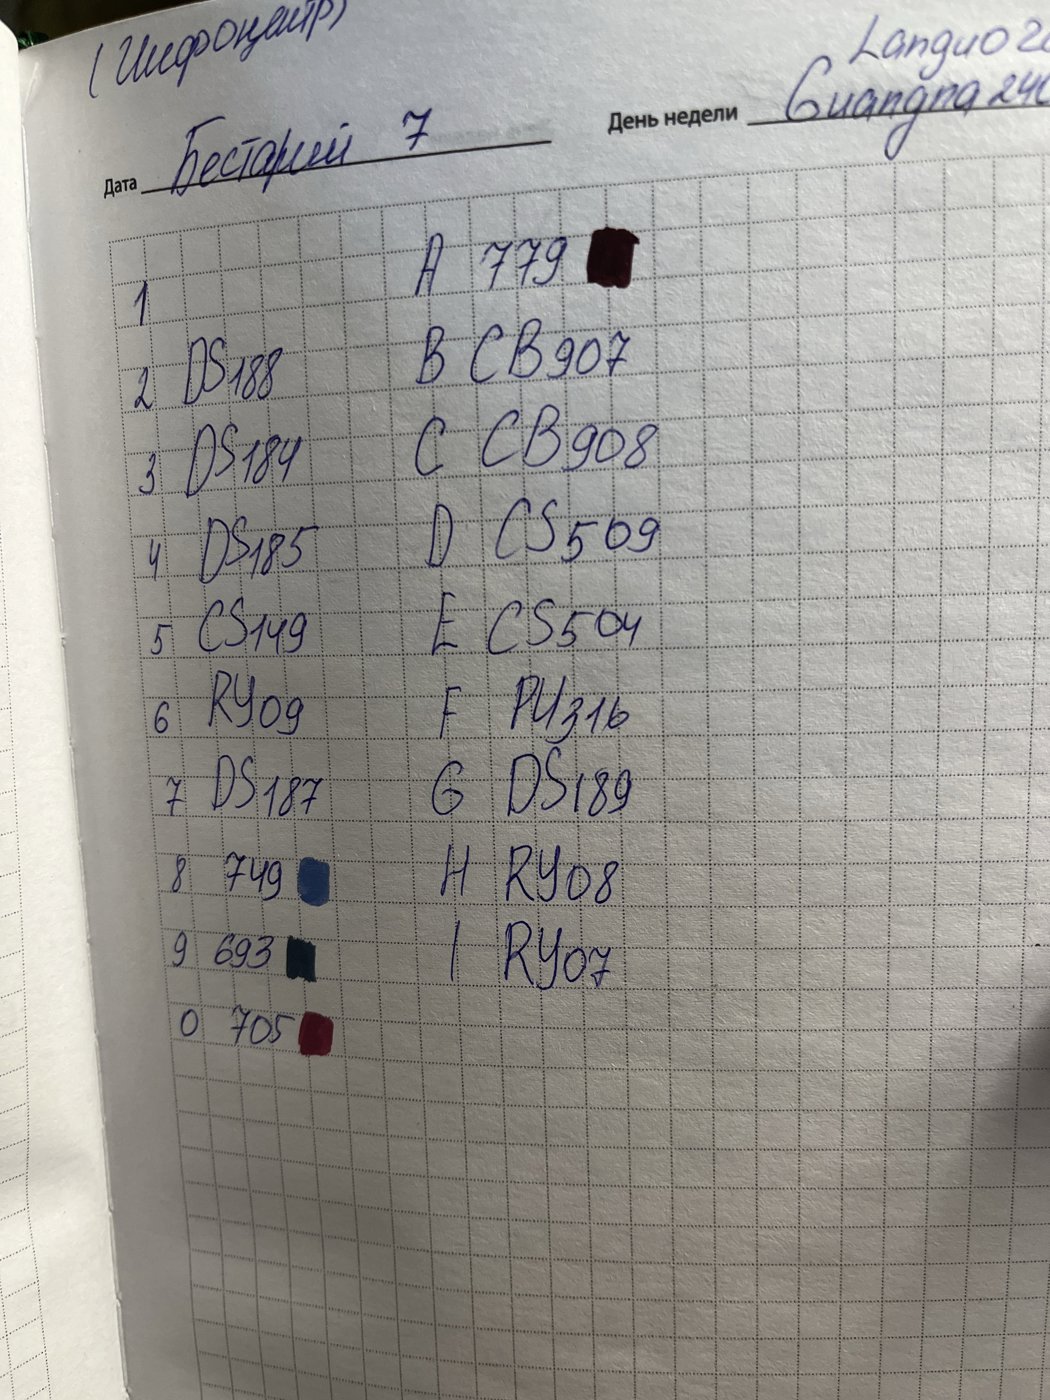 (Цифроцентр)
Languo 2
Дата Бестарий 7
День недели Guangna 240
1
A 779
2 DS188
B CB907
3 DS184
C CB908
4 DS185
D CS509
5 CS149
E CS504
6 RY09
F PY316
7 DS187
G DS189
8 749
H RY08
9 693
I RY07
0 705